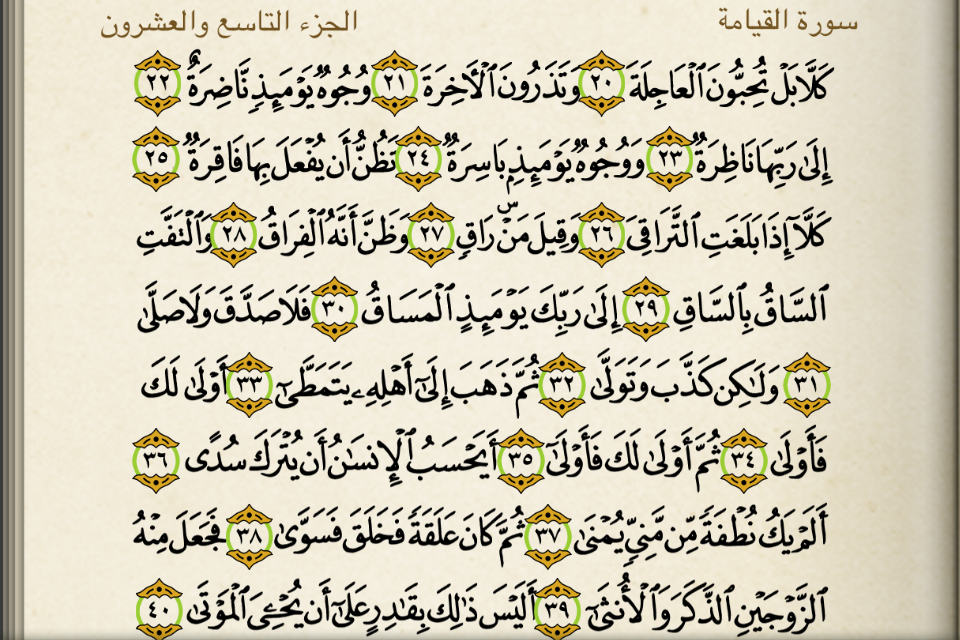 سورة القيامة
الجزء التاسع والعشرون
كَلَّا بَلْ تُحِبُّونَ ٱلْعَاجِلَةَ ٢٠ وَتَذَرُونَ ٱلْأَخِرَةَ ٢١ وُجُوهٌ يَوْمَئِذٍ نَّاضِرَةٌ ٢٢
إِلَىٰ رَبِّهَا نَاظِرَةٌ ٢٣ وَوُجُوهٌ يَوْمَئِذٍۭ بَاسِرَةٌ ٢٤ تَظُنُّ أَن يُفْعَلَ بِهَا فَاقِرَةٌ ٢٥
كَلَّآ إِذَا بَلَغَتِ ٱلتَّرَاقِىَ ٢٦ وَقِيلَ مَنْ ۜ رَاقٍ ٢٧ وَظَنَّ أَنَّهُ ٱلْفِرَاقُ ٢٨ وَٱلْتَفَّتِ
ٱلسَّاقُ بِٱلسَّاقِ ٢٩ إِلَىٰ رَبِّكَ يَوْمَئِذٍ ٱلْمَسَاقُ ٣٠ فَلَا صَدَّقَ وَلَا صَلَّىٰ
٣١ وَلَٰكِن كَذَّبَ وَتَوَلَّىٰ ٣٢ ثُمَّ ذَهَبَ إِلَىٰٓ أَهْلِهِۦ يَتَمَطَّىٰٓ ٣٣ أَوْلَىٰ لَكَ
فَأَوْلَىٰ ٣٤ ثُمَّ أَوْلَىٰ لَكَ فَأَوْلَىٰٓ ٣٥ أَيَحْسَبُ ٱلْإِنسَٰنُ أَن يُتْرَكَ سُدًى ٣٦
أَلَمْ يَكُ نُطْفَةً مِّن مَّنِىٍّ يُمْنَىٰ ٣٧ ثُمَّ كَانَ عَلَقَةً فَخَلَقَ فَسَوَّىٰ ٣٨ فَجَعَلَ مِنْهُ
ٱلزَّوْجَيْنِ ٱلذَّكَرَ وَٱلْأُنثَىٰٓ ٣٩ أَلَيْسَ ذَٰلِكَ بِقَٰدِرٍ عَلَىٰٓ أَن يُحْـِۧىَ ٱلْمَوْتَىٰ ٤٠